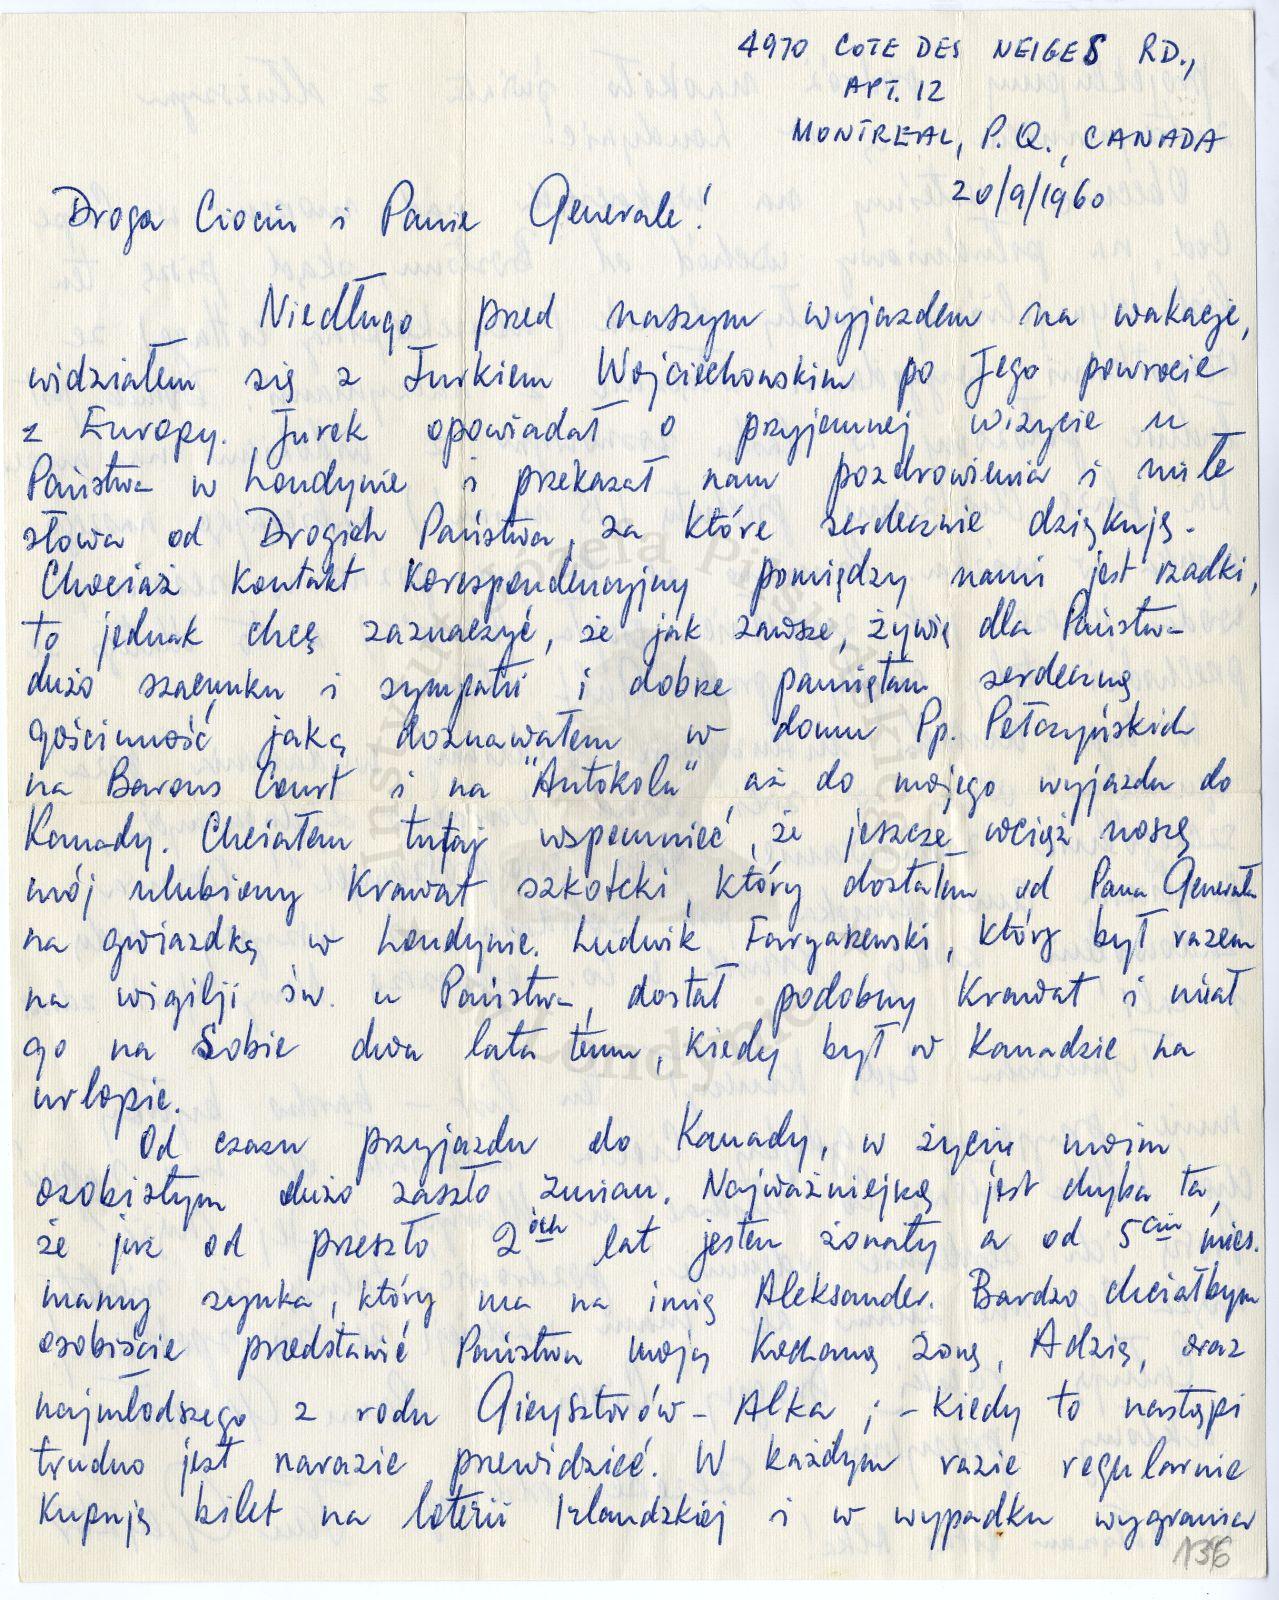 4970 COTE DES NEIGES RD.,
APT. 12
MONTREAL, P.Q., CANADA
20/9/1960
Droga Ciociu i Panie Generale!
Niedługo przed naszym wyjazdem na wakacje,
widziałem się z Jurkiem Wojciechowskim po Jego powrocie
z Europy. Jurek opowiadał o przyjemnej wizycie u
Państwa w Londynie i przekazał nam pozdrowienia i miłe
słowa od Drogich Państwa, za które serdecznie dziękuję.
Chociaż kontakt korespondencyjny pomiędzy nami jest rzadki,
to jednak chcę zaznaczyć, że jak zawsze, żywię dla Państwa
dużo szacunku i sympatii i dobrze pamiętam serdeczną
gościnność jaką doznawałem w domu Pp. Pełczyńskich
na Barons Court i na "Antokolu" aż do mojego wyjazdu do
Kanady. Chciałem tutaj wspomnieć, że jeszcze wciąż noszę
mój ulubiony krawat szkotcki, który dostałem od Pana Generała
na gwiazdkę w Londynie. Ludwik Faryaszewski, który był razem
na wigilji św. u Państwa, dostał podobny krawat i miał
go na sobie dwa lata temu, kiedy był w Kanadzie na
urlopie.
Od czasu przyjazdu do Kanady, w życiu moim
osobistym dużo zaszło zmian. Najważniejszą jest chyba ta,
że już od przeszło 2óch lat jestem żonaty a od 5ciu mies.
mamy synka, który ma na imię Aleksander. Bardzo chciałbym
osobiście przedstawić Państwu moją kochaną żonę, Adzię, oraz
najmłodszego z rodu Gieysztorów - Alka; - kiedy to nastąpi
trudno jest narazie przewidzieć. W każdym razie regularnie
kupuję bilet na loterii Irlandzkiej i w wypadku wygrania
136
Instytut Józefa Piłsudskiego
w Londynie